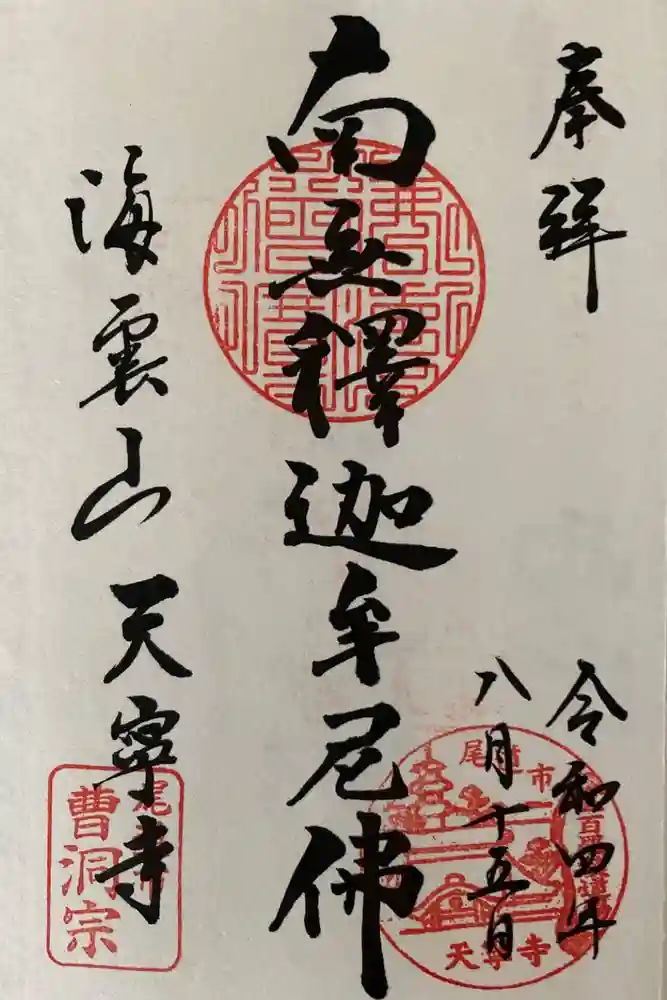 奉拝
令和四年
八月十五日
南無釋迦牟尼佛
海雲山 天寧寺
尾道市
天寧寺
曹洞宗